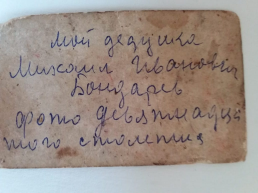 Мой дедушка
Михаил Иванович
Бондарев
фото девятнадца
того столетия